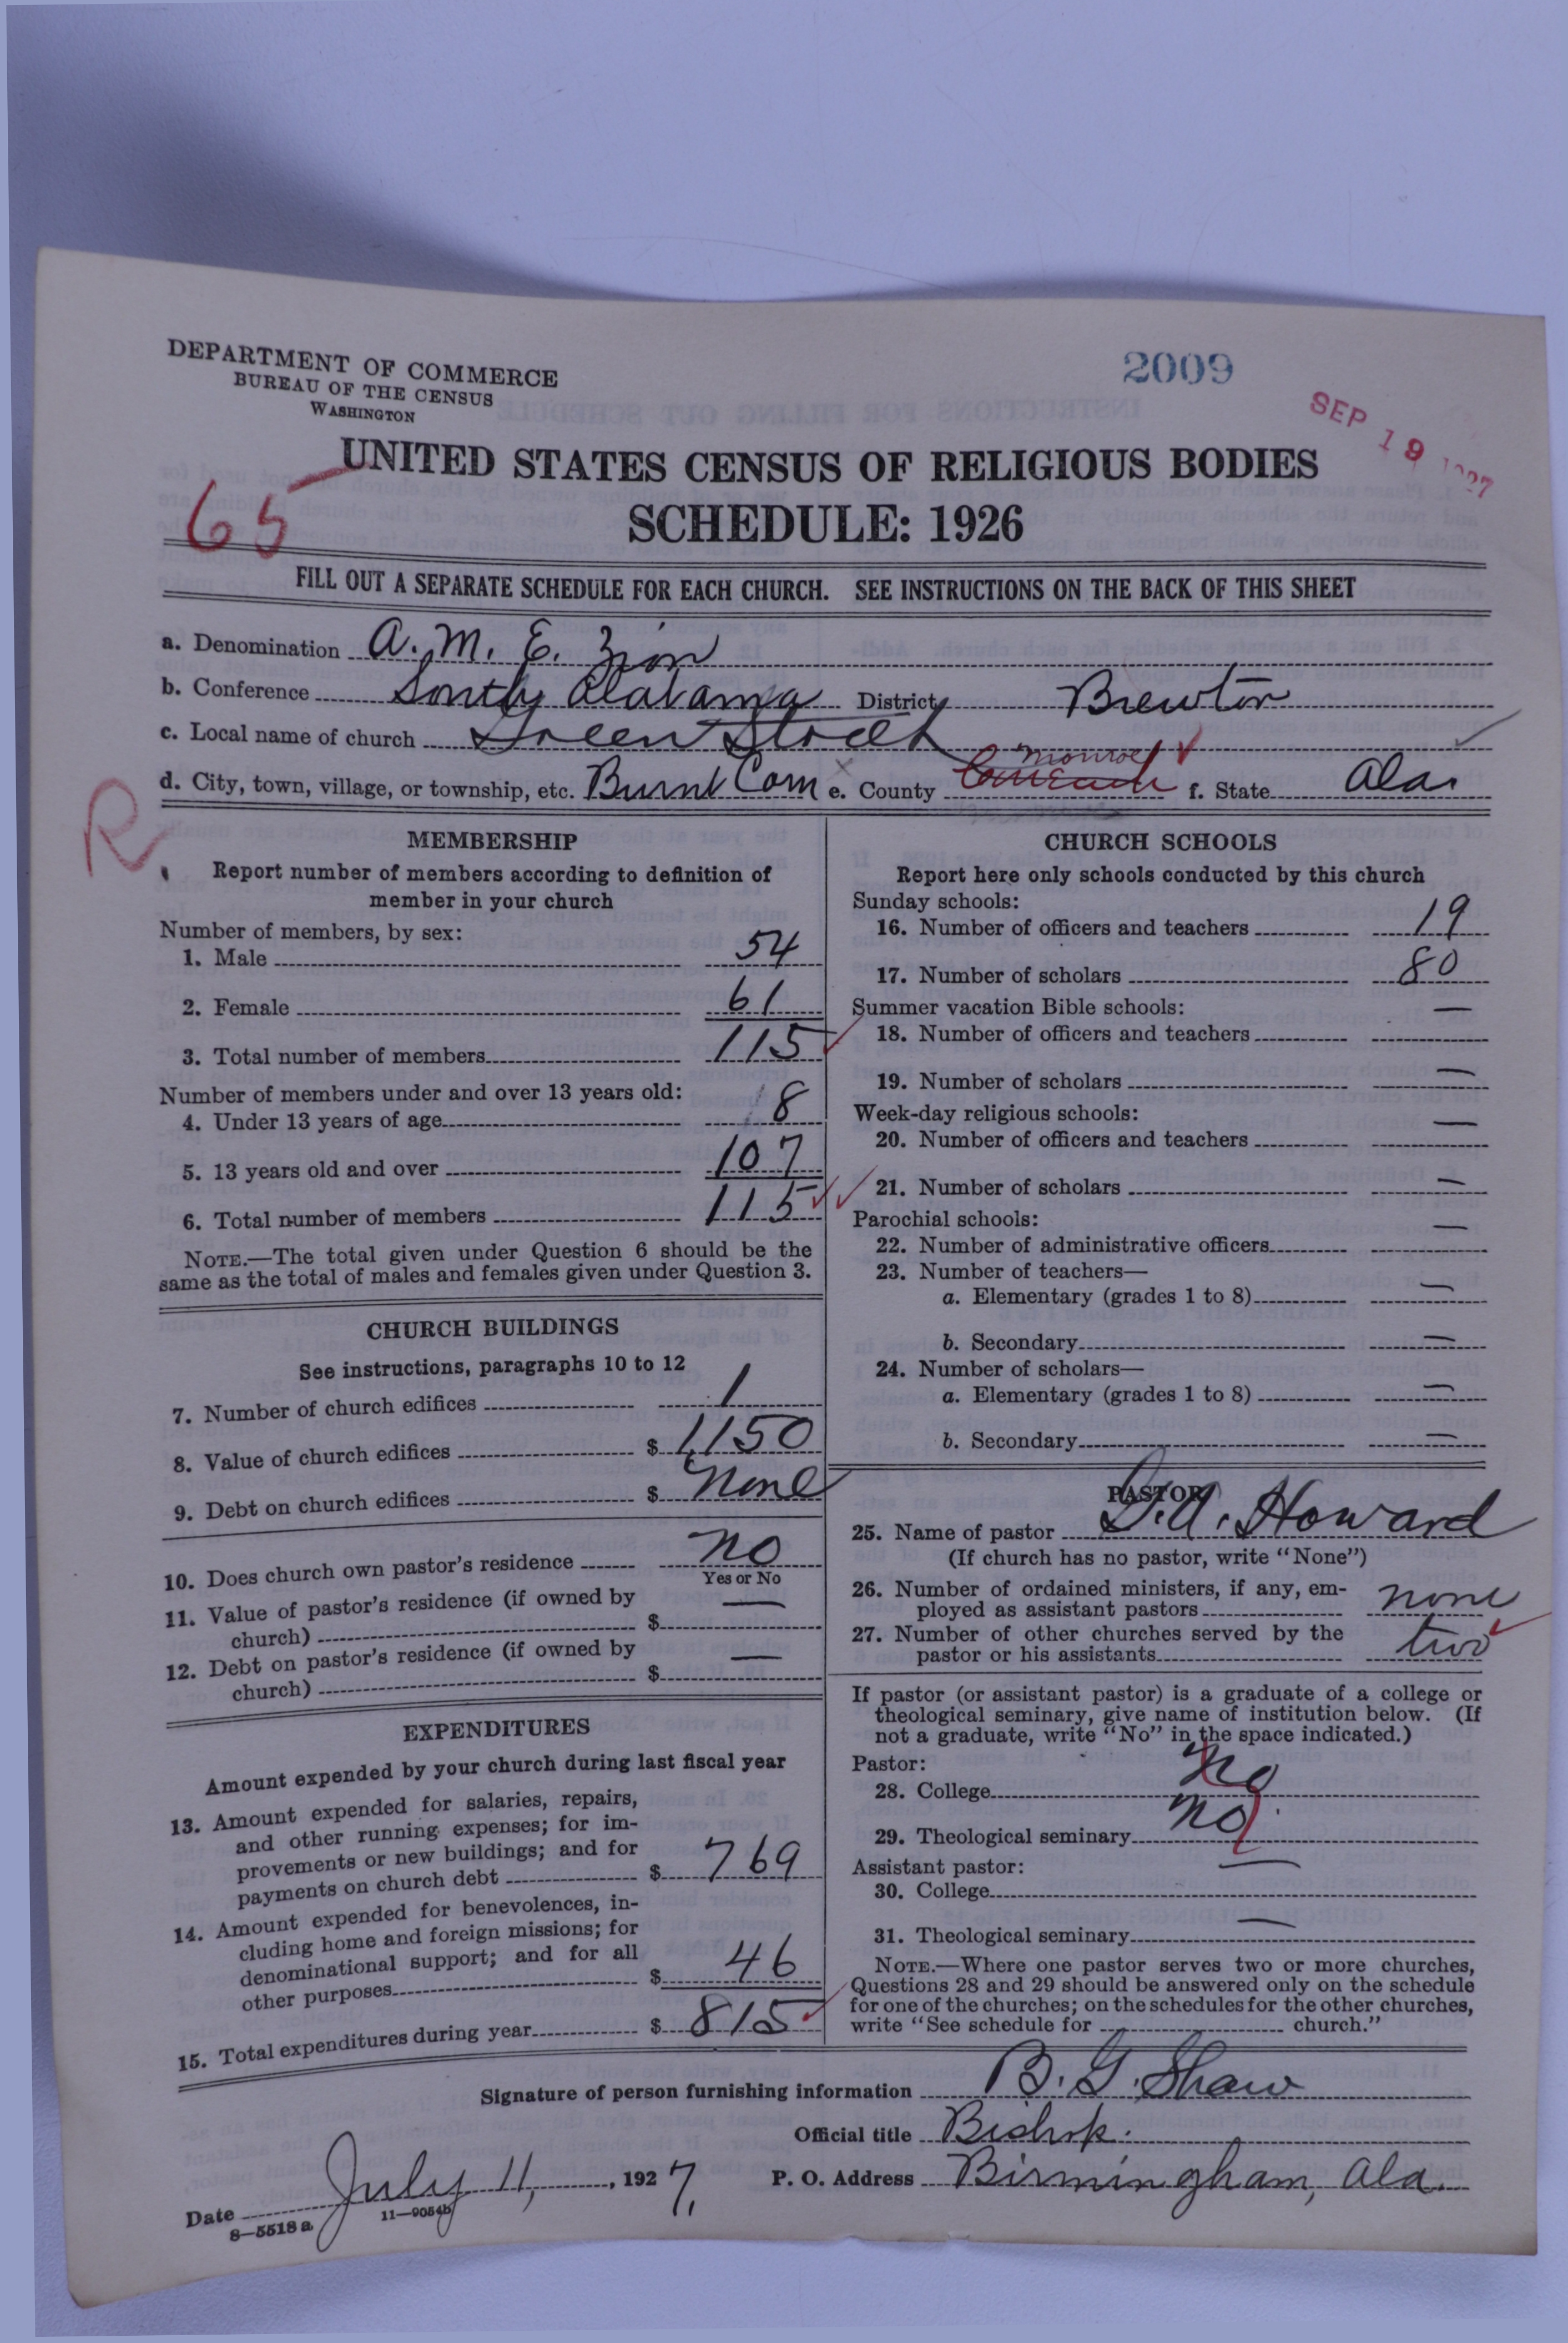 DEPARTMENT OF COMMERCE
BUREAU OF THE CENSUS
WASHINGTON
2009
SEP 19 1927
UNITED STATES CENSUS OF RELIGIOUS BODIES
65
SCHEDULE: 1926
FILL OUT A SEPARATE SCHEDULE FOR EACH CHURCH. SEE INSTRUCTIONS ON THE BACK OF THIS SHEET
a. Denomination A. M. E. Zion
b. Conference South Alabama District Brewton
c. Local name of church Green Street
Monroe
d. City, town, village, or township, etc. Burnt Corn e. County f. State Ala.
R
MEMBERSHIP
Report number of members according to definition of
member in your church
Number of members, by sex:
1. Male 54
2. Female 61
3. Total number of members 115
Number of members under and over 13 years old:
4. Under 13 years of age 8
5. 13 years old and over 107
6. Total number of members 115
NOTE.—The total given under Question 6 should be the
same as the total of males and females given under Question 3.
CHURCH BUILDINGS
See instructions, paragraphs 10 to 12
7. Number of church edifices 1
8. Value of church edifices $ 1150
9. Debt on church edifices $ none
10. Does church own pastor's residence no
Yes or No
11. Value of pastor's residence (if owned by
church) $ —
12. Debt on pastor's residence (if owned by
church) $ —
EXPENDITURES
Amount expended by your church during last fiscal year
13. Amount expended for salaries, repairs,
and other running expenses; for im-
provements or new buildings; and for
payments on church debt $ 769
14. Amount expended for benevolences, in-
cluding home and foreign missions; for
denominational support; and for all
other purposes $ 46
15. Total expenditures during year $ 815
CHURCH SCHOOLS
Report here only schools conducted by this church
Sunday schools:
16. Number of officers and teachers 19
17. Number of scholars 80
Summer vacation Bible schools:
18. Number of officers and teachers —
19. Number of scholars —
Week-day religious schools:
20. Number of officers and teachers —
21. Number of scholars —
Parochial schools:
22. Number of administrative officers —
23. Number of teachers—
a. Elementary (grades 1 to 8) —
b. Secondary —
24. Number of scholars—
a. Elementary (grades 1 to 8) —
b. Secondary —
PASTOR
25. Name of pastor Howard
(If church has no pastor, write "None")
26. Number of ordained ministers, if any, em-
ployed as assistant pastors none
27. Number of other churches served by the
pastor or his assistants two
If pastor (or assistant pastor) is a graduate of a college or
theological seminary, give name of institution below. (If
not a graduate, write "No" in the space indicated.)
Pastor:
28. College no
29. Theological seminary no
Assistant pastor:
30. College —
31. Theological seminary —
NOTE.—Where one pastor serves two or more churches,
Questions 28 and 29 should be answered only on the schedule
for one of the churches; on the schedules for the other churches,
write "See schedule for church."
Signature of person furnishing information B. G. Shaw
Official title Bishop.
Date July 11, 1927. P. O. Address Birmingham, Ala.
8—5518 a 11—9054b